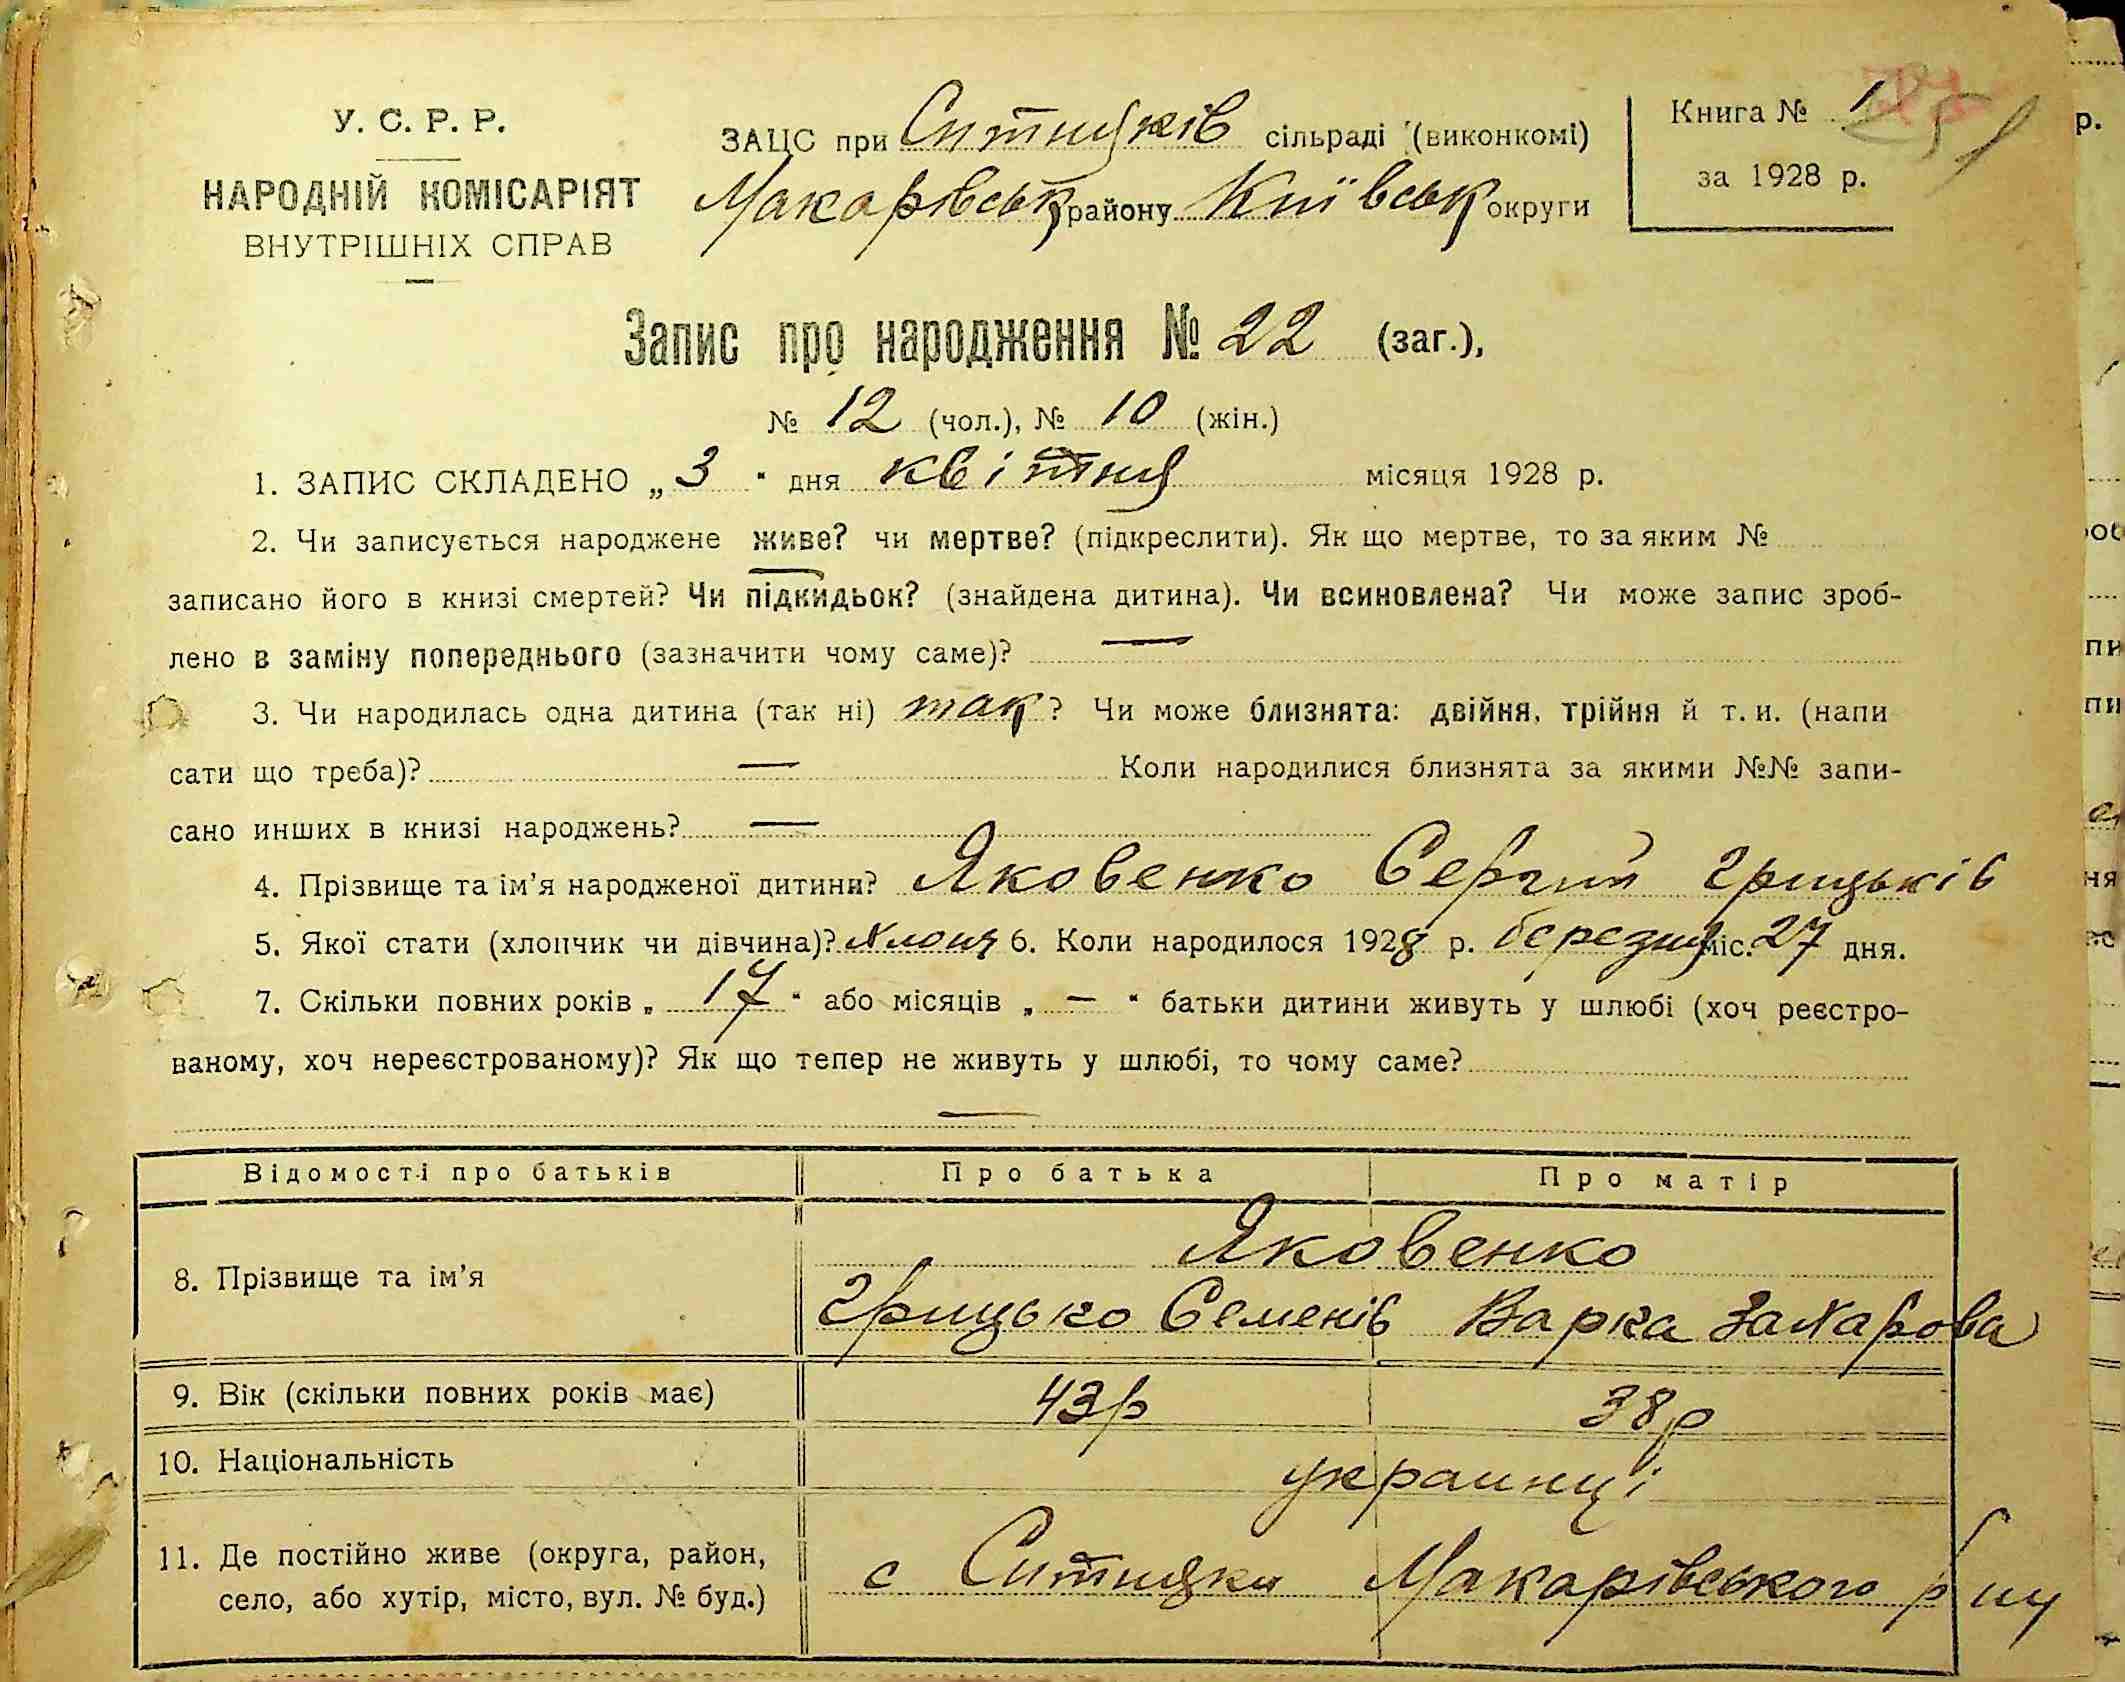 У. С. Р. Р.
НАРОДНІЙ КОМІСАРІЯТ
ВНУТРІШНІХ СПРАВ
ЗАЦС при Ситняків сільраді (виконкомі)
Макарівськ району Київськ округи
Книга № 1
за 1928 р.
Запис про народження № 22 (заг.),
№ 12 (чол.), № 10 (жін.)
1. ЗАПИС СКЛАДЕНО „ 3 “ дня квітня місяця 1928 р.
2. Чи записується народжене живе? чи мертве? (підкреслити). Як що мертве, то за яким №
записано його в книзі смертей? Чи підкидьок? (знайдена дитина). Чи всиновлена? Чи може запис зроб-
лено в заміну попереднього (зазначити чому саме)? —
3. Чи народилась одна дитина (так ні) так ? Чи може близнята: двійня, трійня й т. и. (напи
сати що треба)? — Коли народилися близнята за якими №№ запи-
сано инших в книзі народжень? —
4. Прізвище та ім’я народженої дитини? Яковенко Сергий Грицьків
5. Якої стати (хлопчик чи дівчина)? хлопя 6. Коли народилося 1928 р. березня міс. 27 дня.
7. Скільки повних років „ 17 “ або місяців „ — “ батьки дитини живуть у шлюбі (хоч реєстро-
ваному, хоч нереєстрованому)? Як що тепер не живуть у шлюбі, то чому саме?
—
Відомості про батьків Про батька Про матір
Яковенко
8. Прізвище та ім’я Грицько Семенів Варка Захарова
9. Вік (скільки повних років має) 43р 38р
10. Національність украинці
11. Де постійно живе (округа, район,
село, або хутір, місто, вул. № буд.) с Ситняки Макарівського р ну